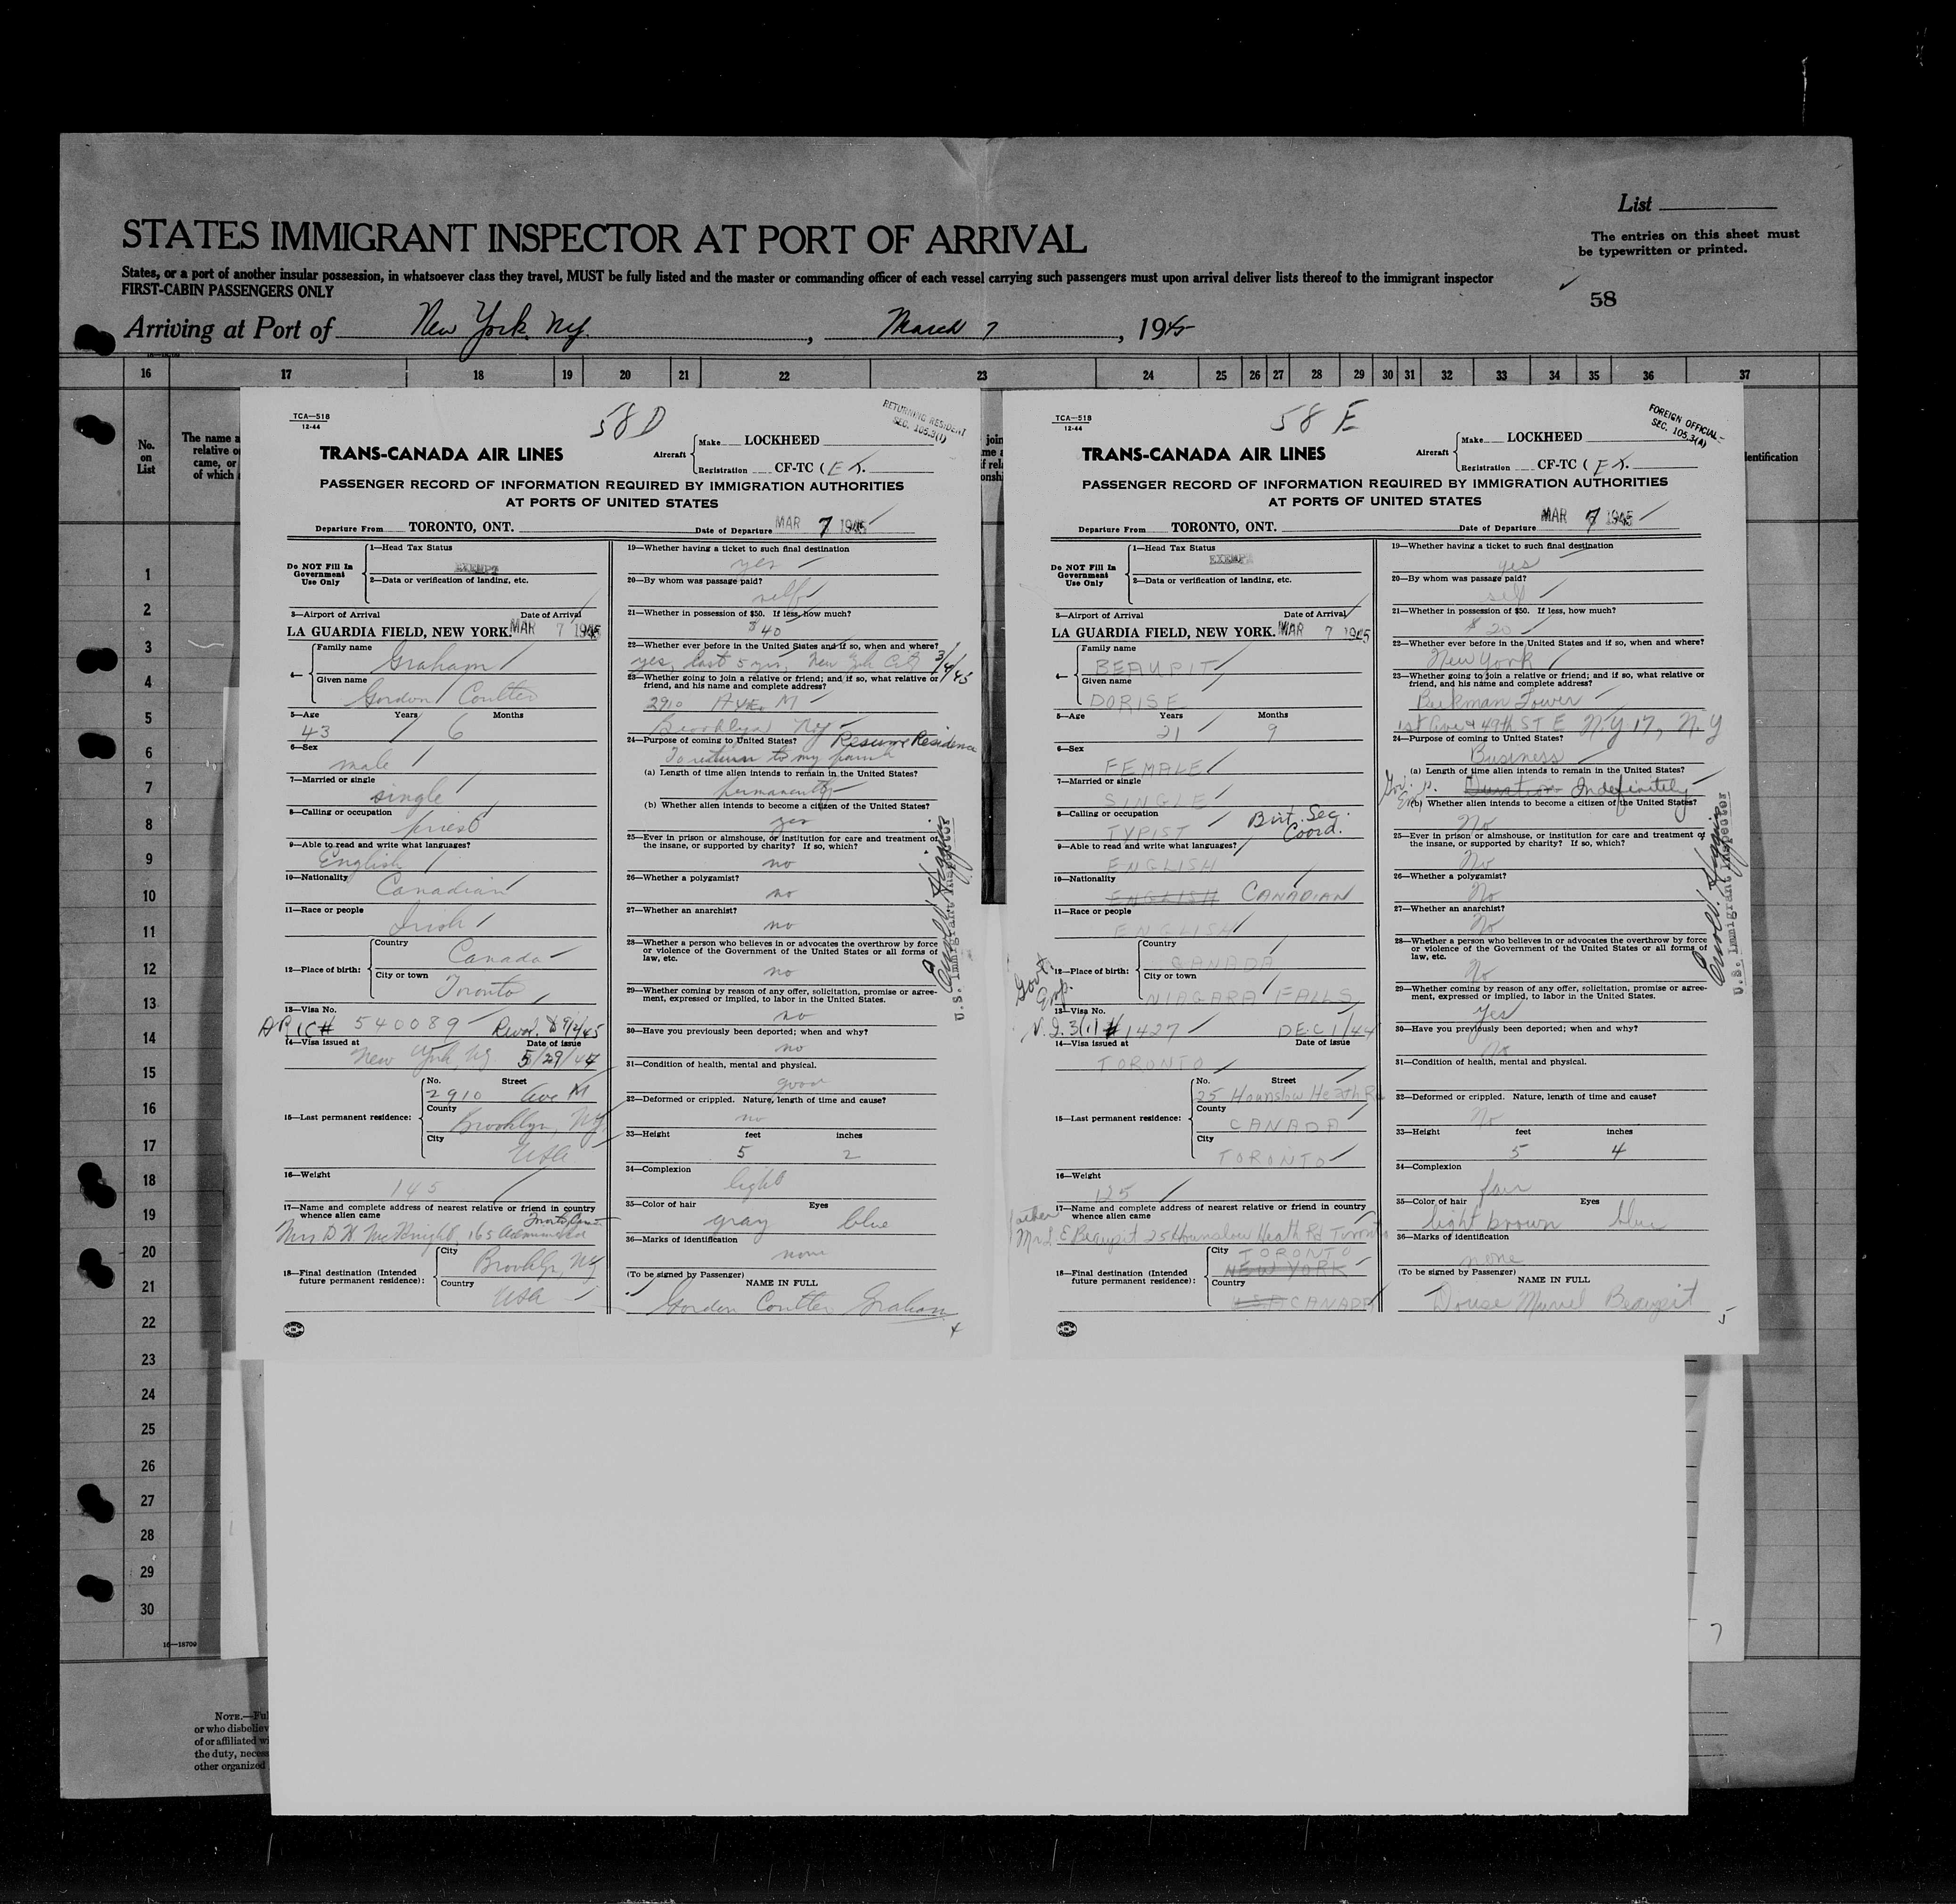 List
STATES IMMIGRANT INSPECTOR AT PORT OF ARRIVAL
The entries on this sheet must
be typewritten or printed.
States, or a port of another insular possession, in whatsoever class they travel, MUST be fully listed and the master or commanding officer of each vessel carrying such passengers must upon arrival deliver lists thereof to the immigrant inspector
FIRST-CABIN PASSENGERS ONLY
58
Arriving at Port of New York, NY. , March 7 , 1945
16 17 18 19 20 21 22 23 24 25 26 27 28 29 30 31 32 33 34 35 36 37
No.
on
List
The name a
relative o
came, or
of which
1
2
3
4
5
6
7
8
9
10
11
12
13
14
15
16
17
18
19
20
21
22
23
24
25
26
27
28
29
30
16—18709
NOTE.—Ful
or who disbeliev
of or affiliated wi
the duty, necess
other organized
TCA—518
12-44
58 D
RETURNING RESIDENT
SEC. 105.3(1)
TRANS-CANADA AIR LINES
Aircraft
Make LOCKHEED
Registration CF-TC (
PASSENGER RECORD OF INFORMATION REQUIRED BY IMMIGRATION AUTHORITIES
AT PORTS OF UNITED STATES
Departure From TORONTO, ONT. Date of Departure MAR 7 1945
Do NOT Fill In
Government
Use Only
1—Head Tax Status
EXEMPT
2—Data or verification of landing, etc.
3—Airport of Arrival Date of Arrival
LA GUARDIA FIELD, NEW YORK. MAR 7 1945
4—
Family name
Graham
Given name
Gordon Coulter
5—Age Years Months
43 6
6—Sex
male
7—Married or single
single
8—Calling or occupation
priest
9—Able to read and write what languages?
English
10—Nationality
Canadian
11—Race or people
Irish
12—Place of birth:
Country
Canada
City or town
Toronto
13—Visa No.
540089
14—Visa issued at Date of issue
New York, NY 5/29/44
15—Last permanent residence:
No. Street
2910 Ave M
County
Brooklyn, NY
City
USA
16—Weight
145
17—Name and complete address of nearest relative or friend in country
whence alien came
Mrs D H McKnight, 165
18—Final destination (Intended
future permanent residence):
City
Brooklyn, NY
Country
USA
19—Whether having a ticket to such final destination
yes
20—By whom was passage paid?
self
21—Whether in possession of $50. If less, how much?
$40
22—Whether ever before in the United States and if so, when and where?
yes, last 5 yrs, New York City 3/4/45
23—Whether going to join a relative or friend; and if so, what relative or
friend, and his name and complete address?
2910 Ave M
Brooklyn NY
24—Purpose of coming to United States? Resume Residence
To return to my parish
(a) Length of time alien intends to remain in the United States?
permanently
(b) Whether alien intends to become a citizen of the United States?
yes
25—Ever in prison or almshouse, or institution for care and treatment of
the insane, or supported by charity? If so, which?
no
26—Whether a polygamist?
no
27—Whether an anarchist?
no
28—Whether a person who believes in or advocates the overthrow by force
or violence of the Government of the United States or all forms of
law, etc.
no
29—Whether coming by reason of any offer, solicitation, promise or agree-
ment, expressed or implied, to labor in the United States.
no
30—Have you previously been deported; when and why?
no
31—Condition of health, mental and physical.
good
32—Deformed or crippled. Nature, length of time and cause?
no
33—Height feet inches
5 2
34—Complexion
light
35—Color of hair Eyes
gray blue
36—Marks of identification
none
(To be signed by Passenger)
NAME IN FULL
Gordon Coulter Graham
U.S. Immigrant Inspector
TCA—518
12-44
58 E
FOREIGN OFFICIAL-
SEC. 105.3(4)
TRANS-CANADA AIR LINES
Aircraft
Make LOCKHEED
Registration CF-TC (
PASSENGER RECORD OF INFORMATION REQUIRED BY IMMIGRATION AUTHORITIES
AT PORTS OF UNITED STATES
Departure From TORONTO, ONT. Date of Departure MAR 7 1945
Do NOT Fill In
Government
Use Only
1—Head Tax Status
EXEMPT
2—Data or verification of landing, etc.
3—Airport of Arrival Date of Arrival
LA GUARDIA FIELD, NEW YORK. MAR 7 1945
4—
Family name
BEAUPIT
Given name
DORISE
5—Age Years Months
21 9
6—Sex
FEMALE
7—Married or single
SINGLE
8—Calling or occupation
TYPIST Brit. Sec. Coord.
9—Able to read and write what languages?
ENGLISH
10—Nationality
ENGLISH CANADIAN
11—Race or people
ENGLISH
12—Place of birth:
Country
CANADA
City or town
NIAGARA FALLS
13—Visa No.
#1427 DEC 1/44
14—Visa issued at Date of issue
TORONTO
15—Last permanent residence:
No. Street
25 Hounslow Heath Rd
County
CANADA
City
TORONTO
16—Weight
125
17—Name and complete address of nearest relative or friend in country
whence alien came
father
Mr L E Beaupit 25 Hounslow Heath Rd Toronto
18—Final destination (Intended
future permanent residence):
City
TORONTO
NEW YORK
Country
USA CANADA
19—Whether having a ticket to such final destination
yes
20—By whom was passage paid?
self
21—Whether in possession of $50. If less, how much?
$20
22—Whether ever before in the United States and if so, when and where?
New York
23—Whether going to join a relative or friend; and if so, what relative or
friend, and his name and complete address?
Beekman Tower
1st Ave & 49th ST E N.Y 17, N.Y
24—Purpose of coming to United States?
Business
(a) Length of time alien intends to remain in the United States?
Duration Indefinitely
(b) Whether alien intends to become a citizen of the United States?
No
25—Ever in prison or almshouse, or institution for care and treatment of
the insane, or supported by charity? If so, which?
No
26—Whether a polygamist?
No
27—Whether an anarchist?
No
28—Whether a person who believes in or advocates the overthrow by force
or violence of the Government of the United States or all forms of
law, etc.
No
29—Whether coming by reason of any offer, solicitation, promise or agree-
ment, expressed or implied, to labor in the United States.
Yes
30—Have you previously been deported; when and why?
No
31—Condition of health, mental and physical.
32—Deformed or crippled. Nature, length of time and cause?
No
33—Height feet inches
5 4
34—Complexion
fair
35—Color of hair Eyes
light brown blue
36—Marks of identification
none
(To be signed by Passenger)
NAME IN FULL
Dorise Muriel Beaupit
U.S. Immigrant Inspector
dentification